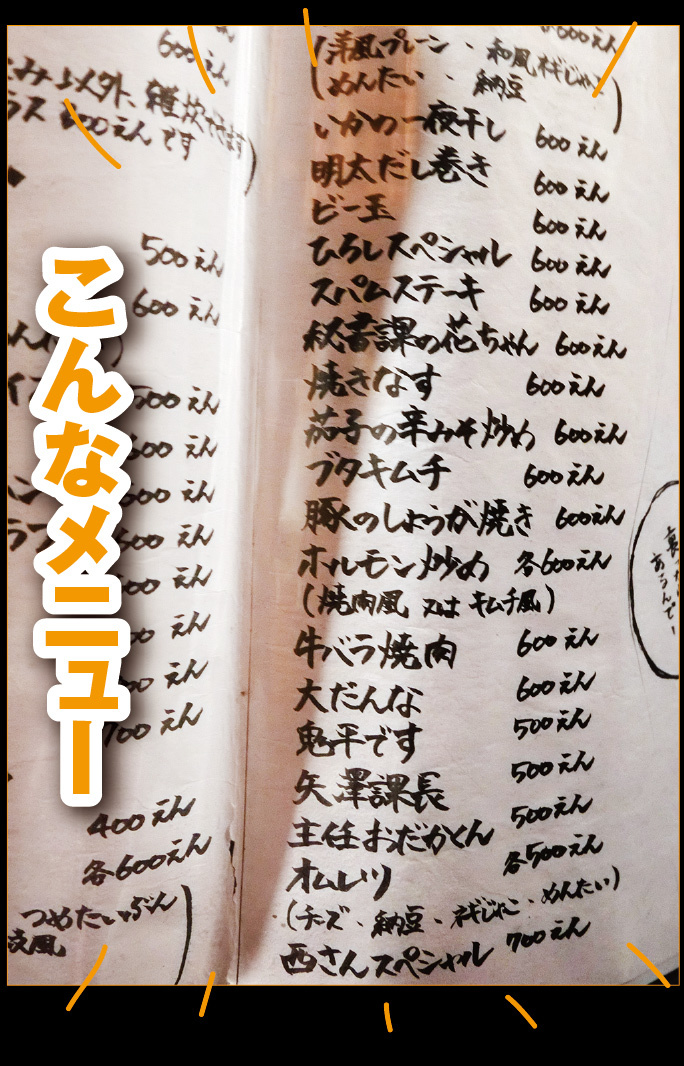 こんなメニュー
600えん
以外、雑炊
600えんです
500えん
600えん
500えん
600えん
600えん
600えん
600えん
600えん
700えん
400えん
各600えん
つめたい
600えん
(洋風プレーン・和風ネギじゃこ
めんたい・納豆)
いかの一夜干し 600えん
明太だし巻き 600えん
ビー玉 600えん
ひろしスペシャル 600えん
スパムステーキ 600えん
秘書課の花ちゃん 600えん
焼きなす 600えん
茄子の辛みそ炒め 600えん
ブタキムチ 600えん
豚のしょうが焼き 600えん
ホルモン炒め 各600えん
(焼肉風 又は キムチ風)
牛バラ焼肉 600えん
大だんな 600えん
鬼平です 500えん
矢澤課長 500えん
主任おだかくん 500えん
オムレツ 各500えん
(チーズ・納豆・ネギじゃこ・めんたい)
西さんスペシャル 700えん